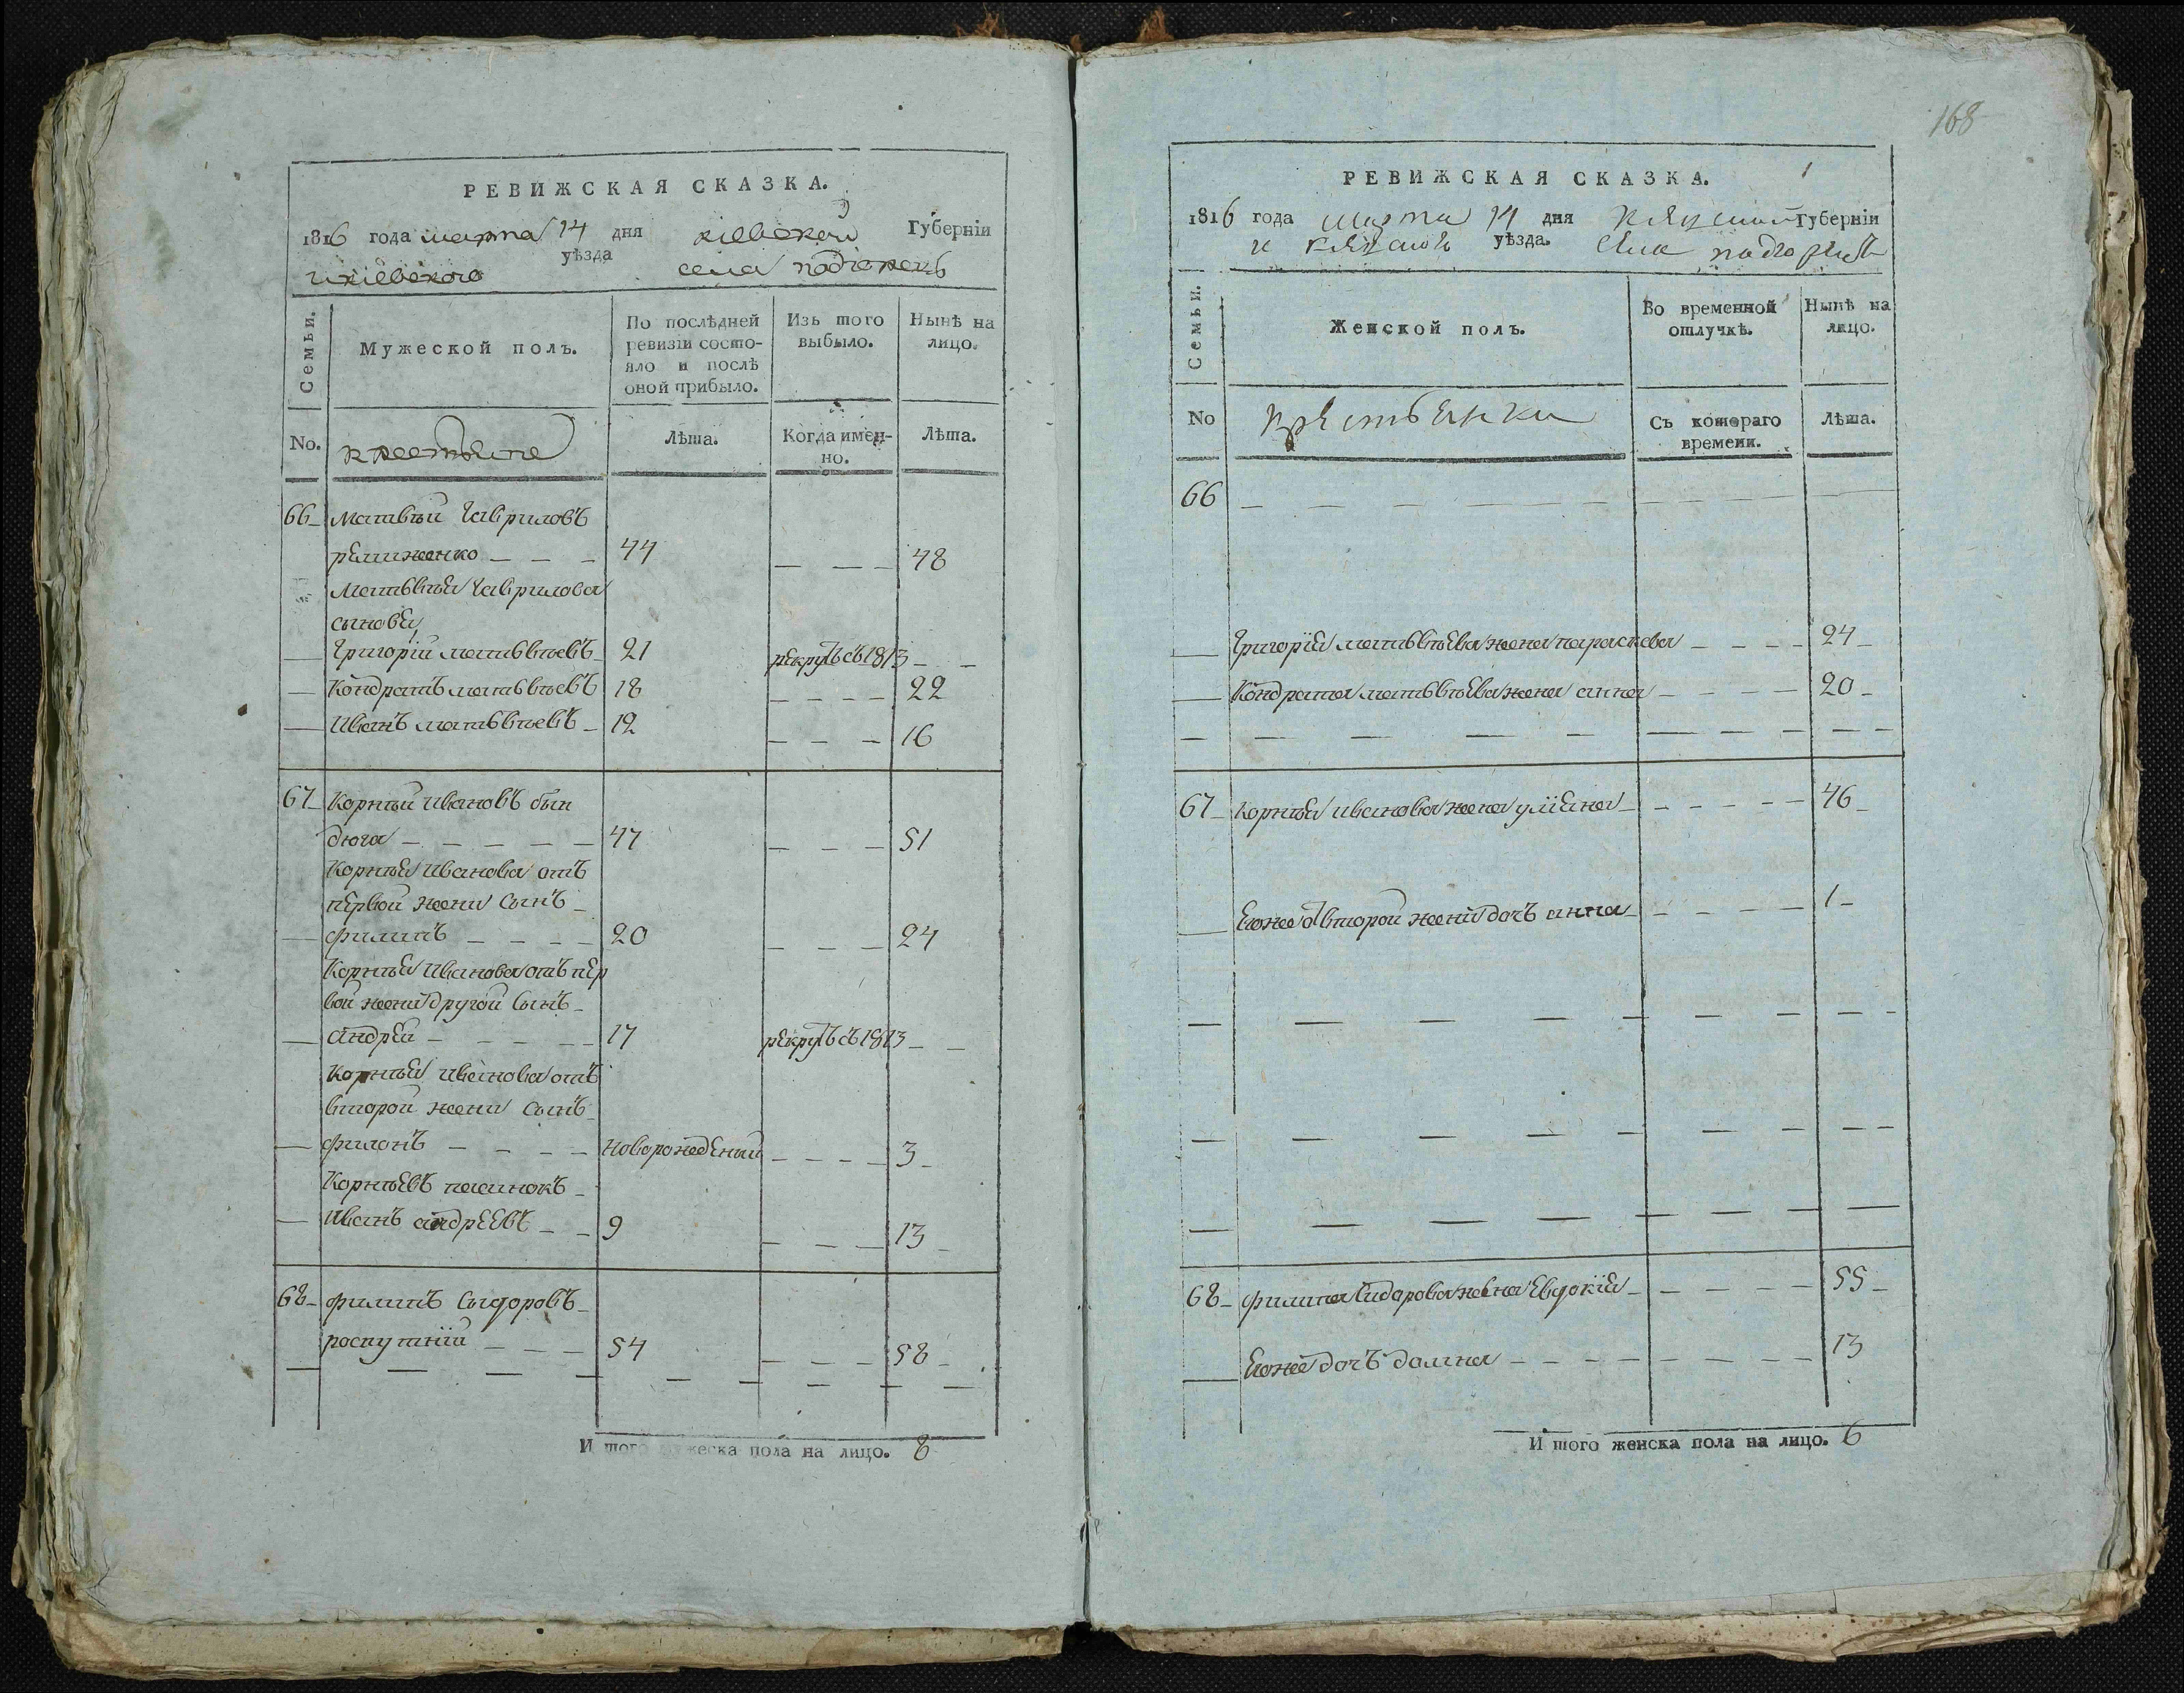 РЕВИЖСКАЯ СКАЗКА.
1816 года марта 14 дня кіевской Губерніи
и кіевского уѣзда села подгорецъ
Семьи.
Мужеской полъ.
По послѣдней ревизіи состо-
яло и послѣ
оной прибыло.
Изъ того
выбыло.
Нынѣ на
лицо.
No.
крестьяне
Лѣта.
Когда имен-
но.
Лѣта.
66 Матвѣй Гавриловъ
44 48
Матвѣя Гаврилова
сыновья
Григорій матвѣевъ 21 рекрутъ съ 1813
Кондратъ матвѣевъ 18 22
Иванъ матвѣевъ 12 16
67 Корнѣй ивановъ бын
дюга 47 51
Корнѣя Иванова отъ
первой жени сынъ
филипъ 20 24
Корнѣя Иванова отъ пер
вой жени другой сынъ
андрей 17 рекрутъ съ 1813
Корнѣя иванова отъ
второй жени сынъ
филонъ новорожденый 3
Корнѣевъ пасинокъ
Иванъ андреевъ 9 13
68 филипъ Сыдоровъ
роспутній 54 58
И того мужеска пола на лицо. 8
168
РЕВИЖСКАЯ СКАЗКА.
1816 года марта 14 дня Кіевской Губерніи
и Кіевской уѣзда. села подгорецъ
Семьи.
Женской полъ.
Во временной
отлучкѣ.
Нынѣ на
лицо.
No
Крестьянки
Съ котораго
времени.
Лѣта.
66
Григорія матвѣева жена параскева 24
Кондрата матвѣева жена анна 20
67 Корнѣя иванова жена уліяна 46
Егоже от второй жени дочь анна 1
68 филипа Сидорова жена Евдокія 55
Егоже дочь домна 13
И того женска пола на лицо. 6